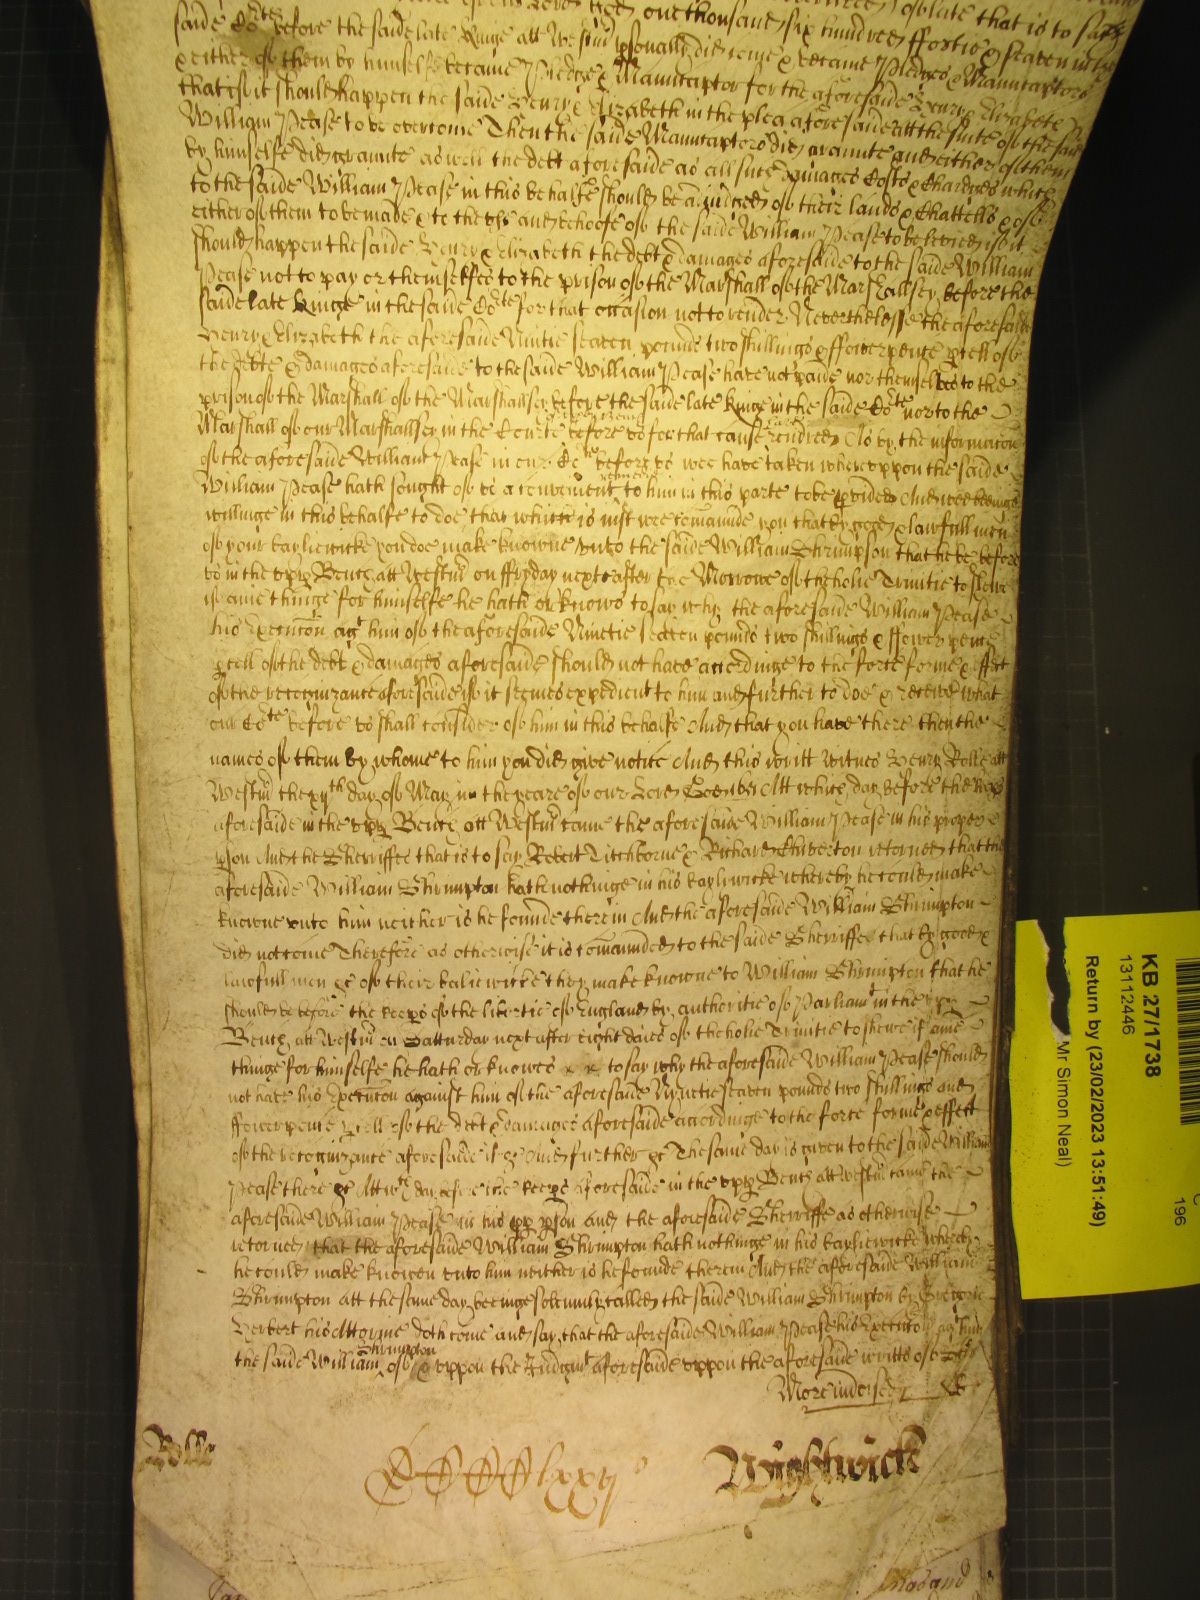 one thousand six hundred ffortie & seaven in the
saide Cor̄te before the saide late Kinge att Westm̄ psonally did come & became Pledges & Manucaptors
& either of them by himselfe became Pledge & Manucaptor for the aforesaide Henry & Elizabeth
that if it should happen the saide Henry & Elizabeth in the plea aforesaide att the suite of the said
William Pease to be overcome Then the saide Manucaptors did graunte and either of them
by himselfe did graunte as well the debt aforesaide as all such damages Costs & Chardges which
to the saide William Pease in this behalfe should be adiudged of their lands & Chattells & of
either of them to be made & to the vse and behoofe of the saide William Pease to be levied if soe it
should happen the saide Henry & Elizabeth the debt & damages aforesaide to the saide William
Pease not to pay or themselfes to the prison of the Marshall of the Marshallsey before the
saide late Kinge in the saide Cor̄te for that occasion not to render Neverthelesse the aforesaide
Henry & Elizabeth the aforesaide Nintie seaven pounds two shillings & ffower pence pcell of
the debte & damages aforesaide to the saide William Pease have not paide nor themselves to the
prison of the Marshall of the Marshallsey before the saide late Kinge in the saide Cor̄te nor to the
Marshall of our Marshallsey in the Courte before vs for that cause rendred As by the informacon
of the aforesaide William Pease in our Cor̄te before vs wee have taken wherevppon the saide
William Pease hath sought of vs a convenient remedie to him in this parte to be pvided And wee beinge
willinge in this behalfe to doe that which is iust wee com̄aunde you that by good & lawfull men
of your bayliewicke you doe make knowne vnto the saide William Shrimpton that he be before
vs in the vpp Bench att Westm̄ on ffryday next after the Morrowe of the holie Trinitie to shewe
if anie thinge for himselfe he hath or knows to say why the aforesaide William Pease
his Execucon agt him of the aforesaide Ninetie seaven pounds two shillings & ffower pence
pcell of the debt & damages aforesaide should not have accordinge to the force forme & effect
of the recognizance aforesaide if it seemes expedient to him and further to doe & receive what
our Cor̄te before vs shall consider of him in this behalfe And that you have there then the
names of them by whome to him you did give notice And this writt Witnes Henry Rolle att
Westm̄ the xijth day of May in the yeare of our Lord God &c Att which day before the keeps
aforesaide in the vpp Bench att Westm̄ came the aforesaide William Pease in his proper
pson And the Sherriffes that is to say Robert Titchborne & Richard Chiverton retorned that the
aforesaide William Shrimpton hath nothinge in his bayliwicke whereby he could make
knowne vnto him neither is he founde therein And the aforesaide William Shrimpton
did not come Therefore as otherwise it is com̄aunded to the saide Sherriffes that by good &
lawfull men &c of their baliewicke they make knowne to William Shrimpton that he
should be before the keeps of the libertie of England by authoritie of Parliamt in the vpp
Bench att Westm̄ on Satturday next after eight daies of the holie Trinitie to shewe if anie
thinge for himselfe he hath or knowes &c to say why the aforesaide William Pease should
not have his Execucon against him of the aforesaide Nynetie seaven pounds two shillings and
ffower pence pcell of the debt & damages aforesaide accordinge to the force forme & effect
of the recognizance aforesaide if &c And further &c The same day is given to the saide William
Pease there &c Att wch day before the keeps aforesaide in the vpp Bench att Westm̄ came the
aforesaide William Pease in his pp pson And the aforesaide Sherriffe as otherwise
retorned that the aforesaide William Shrimpton hath nothinge in his bayliewicke whereby
he could make knowen vnto him neither is he founde therein And the aforesaide William
Shrimpton att the same day beinge solemnly called the saide William Shrimpton by Gregorie
Herbert his Attorine doth come and say that the aforesaide William Pease his Execucon agt him
the saide William Shrimpton of & vppon the Judgmt aforesaide vppon the aforesaide writts of
More indorsed
Rolle
CCCClxxij
Wightwick
KB 27/1738
13112446
Return by (23/02/2023 13:51:49)
Mr Simon Neal)
196